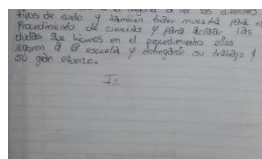 tipos de suelo y también traer muestra para el
Procedimiento de ciencias y para aclarar las
dudas que hicimos en el procedimiento ellos
a la escuela y entregarón su trabajo y
su gran esfuerzo.